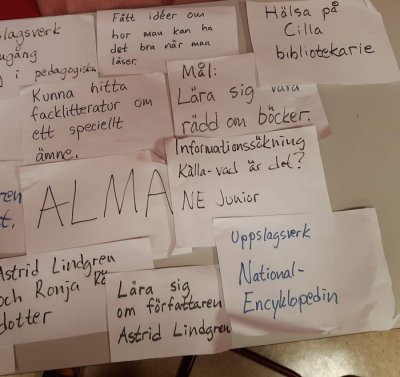 slagsverk
i pedagogiska
Fått idéer om
hur man kan ha
det bra när man
läser.
Hälsa på
Cilla
bibliotekarie
Kunna hitta
facklitteratur om
ett speciellt
ämne.
Mål:
Lära sig vara
rädd om böcker.
Informationssökning
Källa-vad är det?
NE Junior
ALMA
Uppslagsverk
National-
Encyklopedin
Astrid Lindgren
och Ronja
dotter
Lära sig
om författaren
Astrid Lindgren